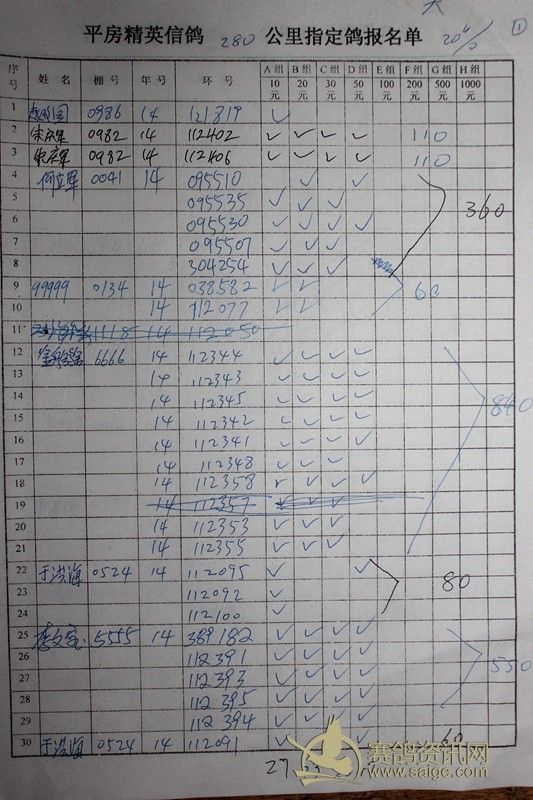 天
平房精英信鸽 280 公里指定鸽报名单 ①
序号 姓名 棚号 年号 环号 A组10元 B组20元 C组30元 D组50元 E组100元 F组200元 G组500元 H组1000元
1 0986 14 121819 ✓
2 宋庆军 0982 14 112402 ✓ ✓ ✓ ✓ 110
3 宋庆军 0982 14 112406 ✓ ✓ ✓ ✓ 110
4 何立军 0041 14 095510 ✓ ✓
5 095535 ✓ ✓ ✓
6 095530 ✓ ✓ ✓ ✓ 360
7 095507 ✓ ✓ ✓
8 304254 ✓ ✓ ✓
9 99999 0134 14 033582 ✓ ✓ 60
10 14 912077 ✓ ✓
11 1118 14 112050
12 6666 14 112344 ✓ ✓ ✓ ✓
13 14 112343 ✓ ✓ ✓ ✓
14 14 112345 ✓ ✓ ✓ ✓
15 14 112342 ✓ ✓ ✓ ✓ 840
16 14 112341 ✓ ✓ ✓ ✓
17 14 112348 ✓ ✓ ✓
18 14 112358 ✓ ✓ ✓ ✓
19 14 112357 ✓ ✓ ✓
20 14 112353 ✓ ✓ ✓
21 14 112355 ✓ ✓ ✓
22 于洪海 0524 14 112095 ✓ ✓ 80
23 112092 ✓
24 112100 ✓
25 李文宝 5555 14 389182 ✓ ✓ ✓ ✓
26 112391 ✓ ✓ ✓ ✓
27 112393 ✓ ✓ ✓ ✓ 550
28 112395 ✓ ✓ ✓ ✓
29 112394 ✓ ✓ ✓ ✓
30 于洪海 0524 14 112091 ✓ ✓ 60
27
赛鸽资讯网
www.saige.com